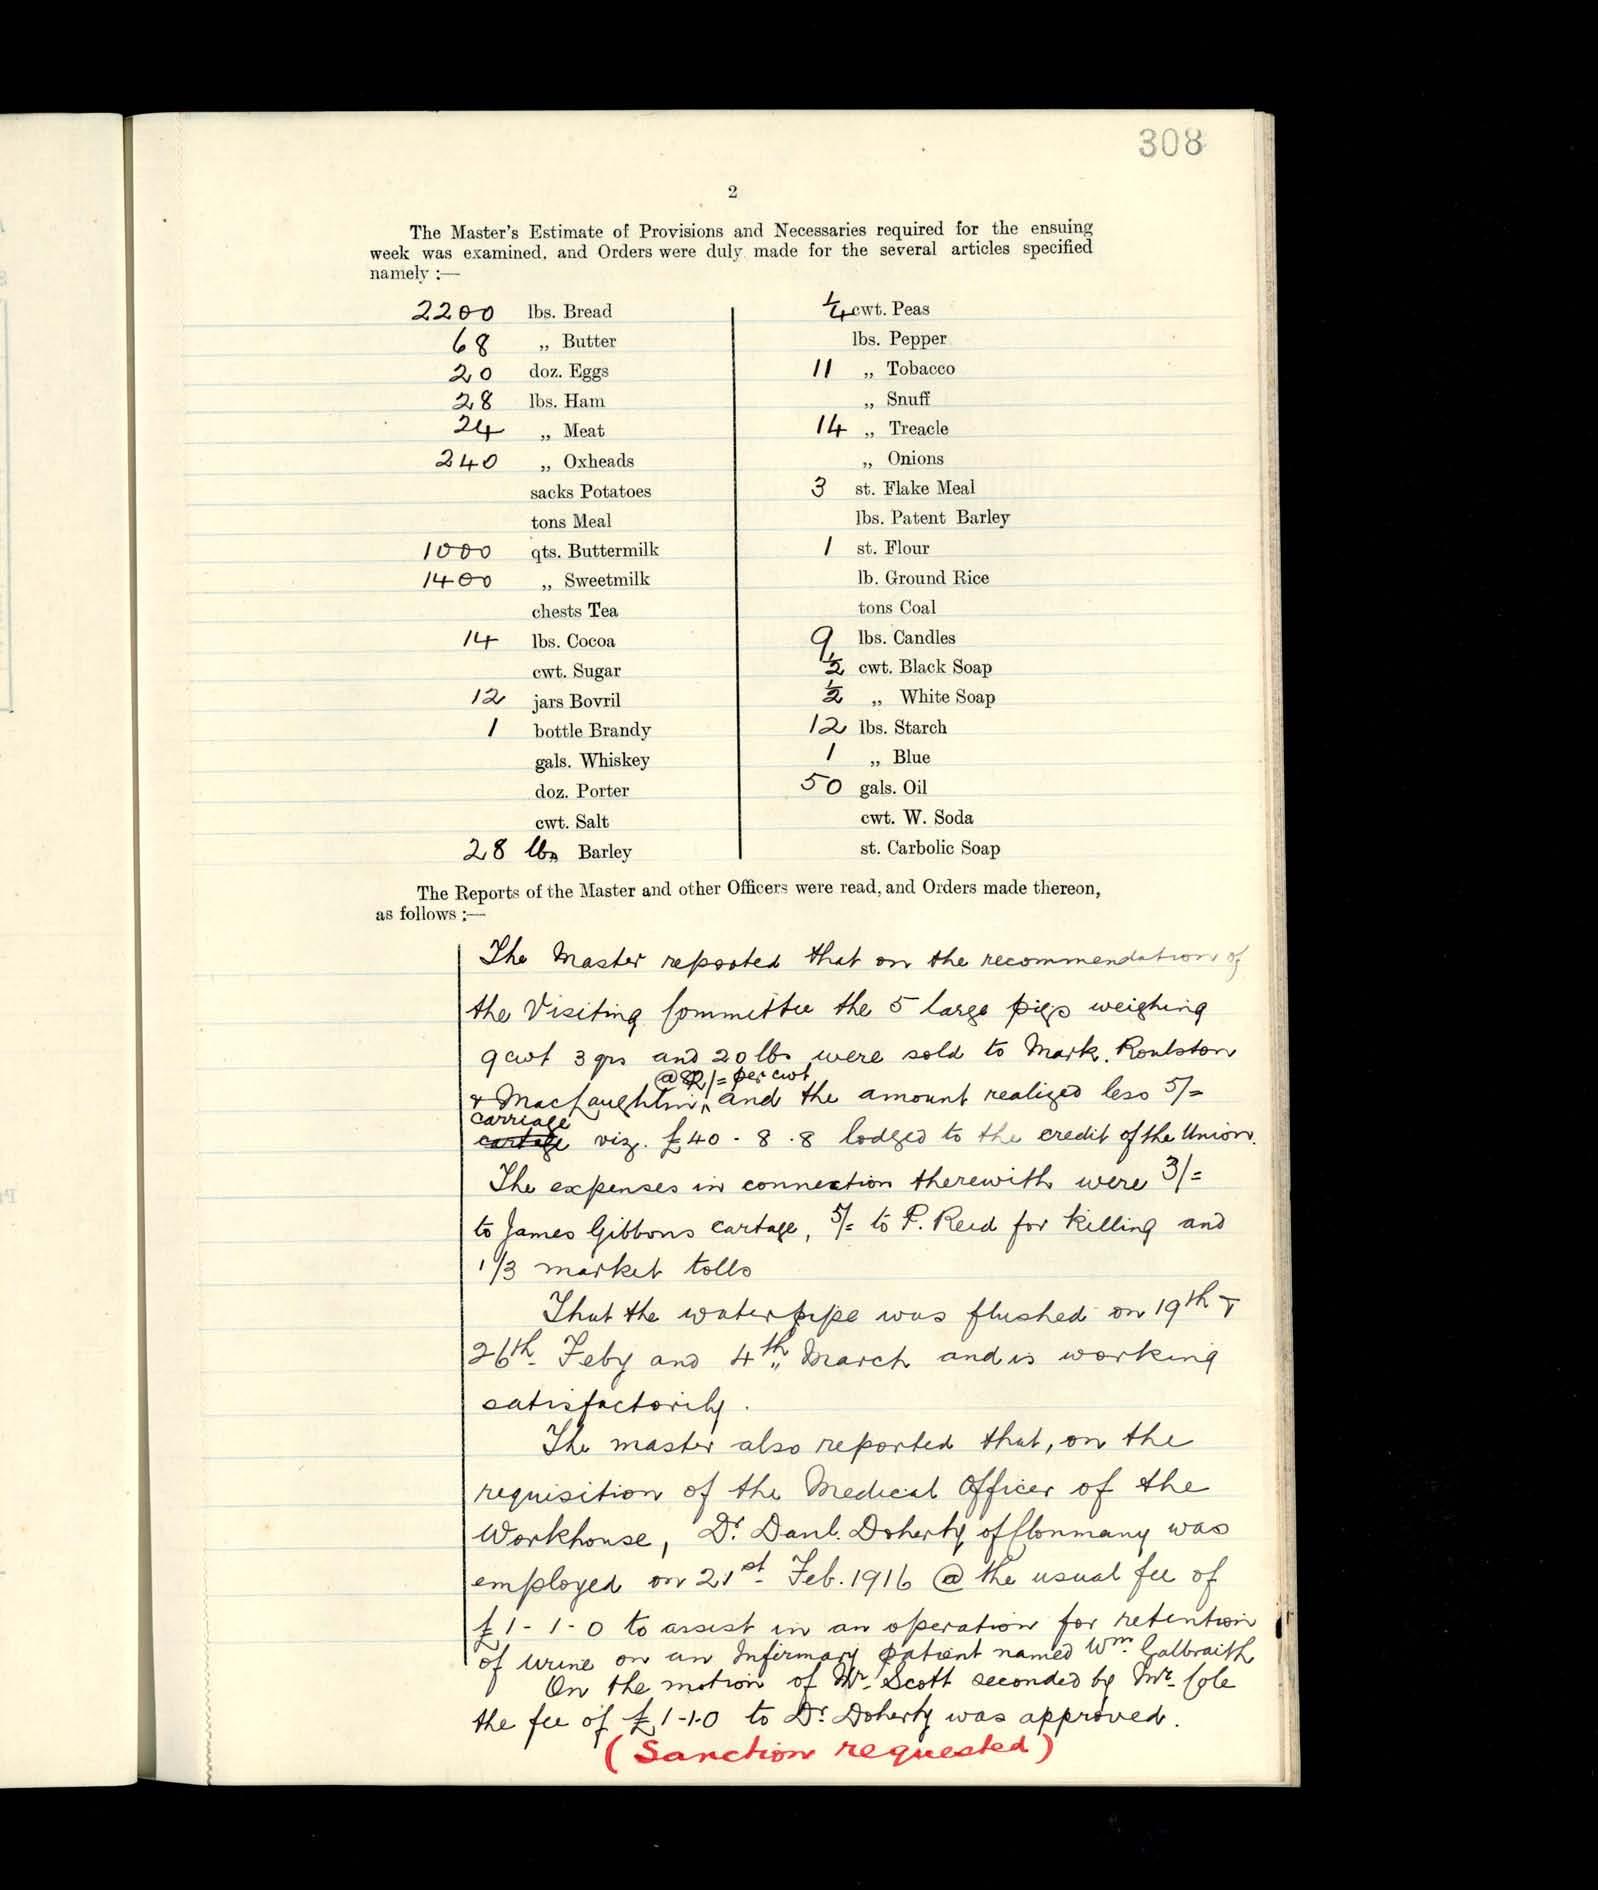 308
2
The Master's Estimate of Provisions and Necessaries required for the ensuing
week was examined, and Orders were duly made for the several articles specified
namely :—
2200 lbs. Bread
68 „ Butter
20 doz. Eggs
28 lbs. Ham
24 „ Meat
240 „ Oxheads
sacks Potatoes
tons Meal
1000 qts. Buttermilk
1400 „ Sweetmilk
chests Tea
14 lbs. Cocoa
cwt. Sugar
12 jars Bovril
1 bottle Brandy
gals. Whiskey
doz. Porter
cwt. Salt
28 lbs Barley
1/4 cwt. Peas
lbs. Pepper
11 „ Tobacco
„ Snuff
14 „ Treacle
„ Onions
3 st. Flake Meal
lbs. Patent Barley
1 st. Flour
lb. Ground Rice
tons Coal
9 lbs. Candles
1/2 cwt. Black Soap
1/2 „ White Soap
12 lbs. Starch
1 „ Blue
50 gals. Oil
cwt. W. Soda
st. Carbolic Soap
The Reports of the Master and other Officers were read, and Orders made thereon,
as follows :—
The Master reported that on the recommendation of
the Visiting Committee the 5 large pigs weighing
9 cwt 3 qrs and 20 lbs were sold to Mark. Roulston
@ 82/= per cwt
& MacLaughlin, and the amount realized less 5/=
carriage
cartage viz. £40 - 8 . 8 lodged to the credit of the Union.
The expenses in connection therewith were 3/=
to James Gibbons cartage, 5/= to P. Reid for killing and
1/3 market tolls
That the waterpipe was flushed on 19th &
26th Feby and 4th March and is working
satisfactorily.
The master also reported that, on the
requisition of the Medical Officer of the
Workhouse, Dr. Danl. Doherty of Clonmany was
employed on 21st Feb. 1916 @ the usual fee of
£1 - 1 - 0 to assist in an operation for retention
of urine on an Infirmary patient named Wm. Galbraith
On the motion of Mr. Scott seconded by Mr. Cole
the fee of £1-1-0 to Dr. Doherty was approved.
(Sanction requested)